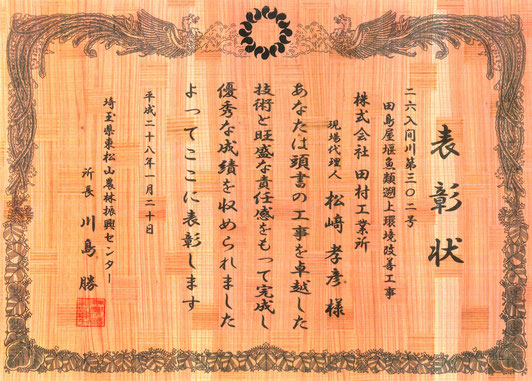 表彰状
二六入間川第三〇二号
田島屋堰魚類遡上環境改善工事
株式会社 田村工業所
現場代理人 松﨑孝彦様
あなたは頭書の工事を卓越した
技術と旺盛な責任感をもって完成し
優秀な成績を収められました
よってここに表彰します
平成二十八年一月二十日
埼玉県東松山農林振興センター
所長 川島 勝